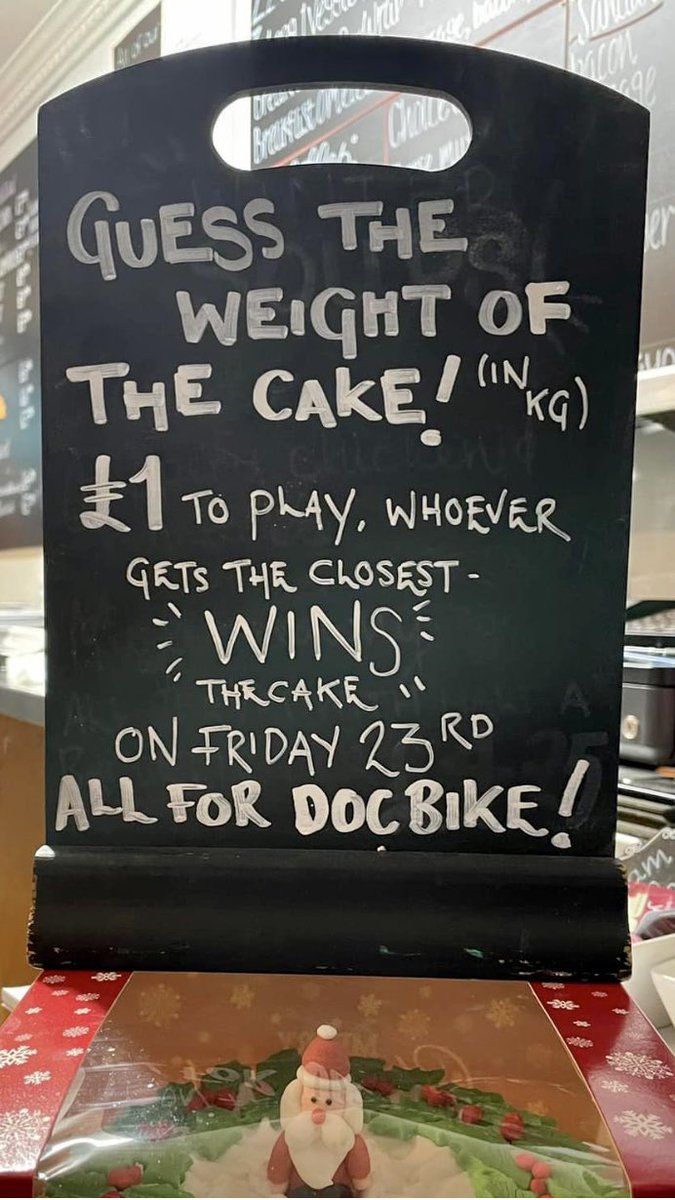 GUESS THE
WEIGHT OF
THE CAKE! (IN KG)
£1 TO PLAY, WHOEVER
GETS THE CLOSEST -
WINS
THE CAKE
ON FRIDAY 23RD
ALL FOR DOCBIKE!